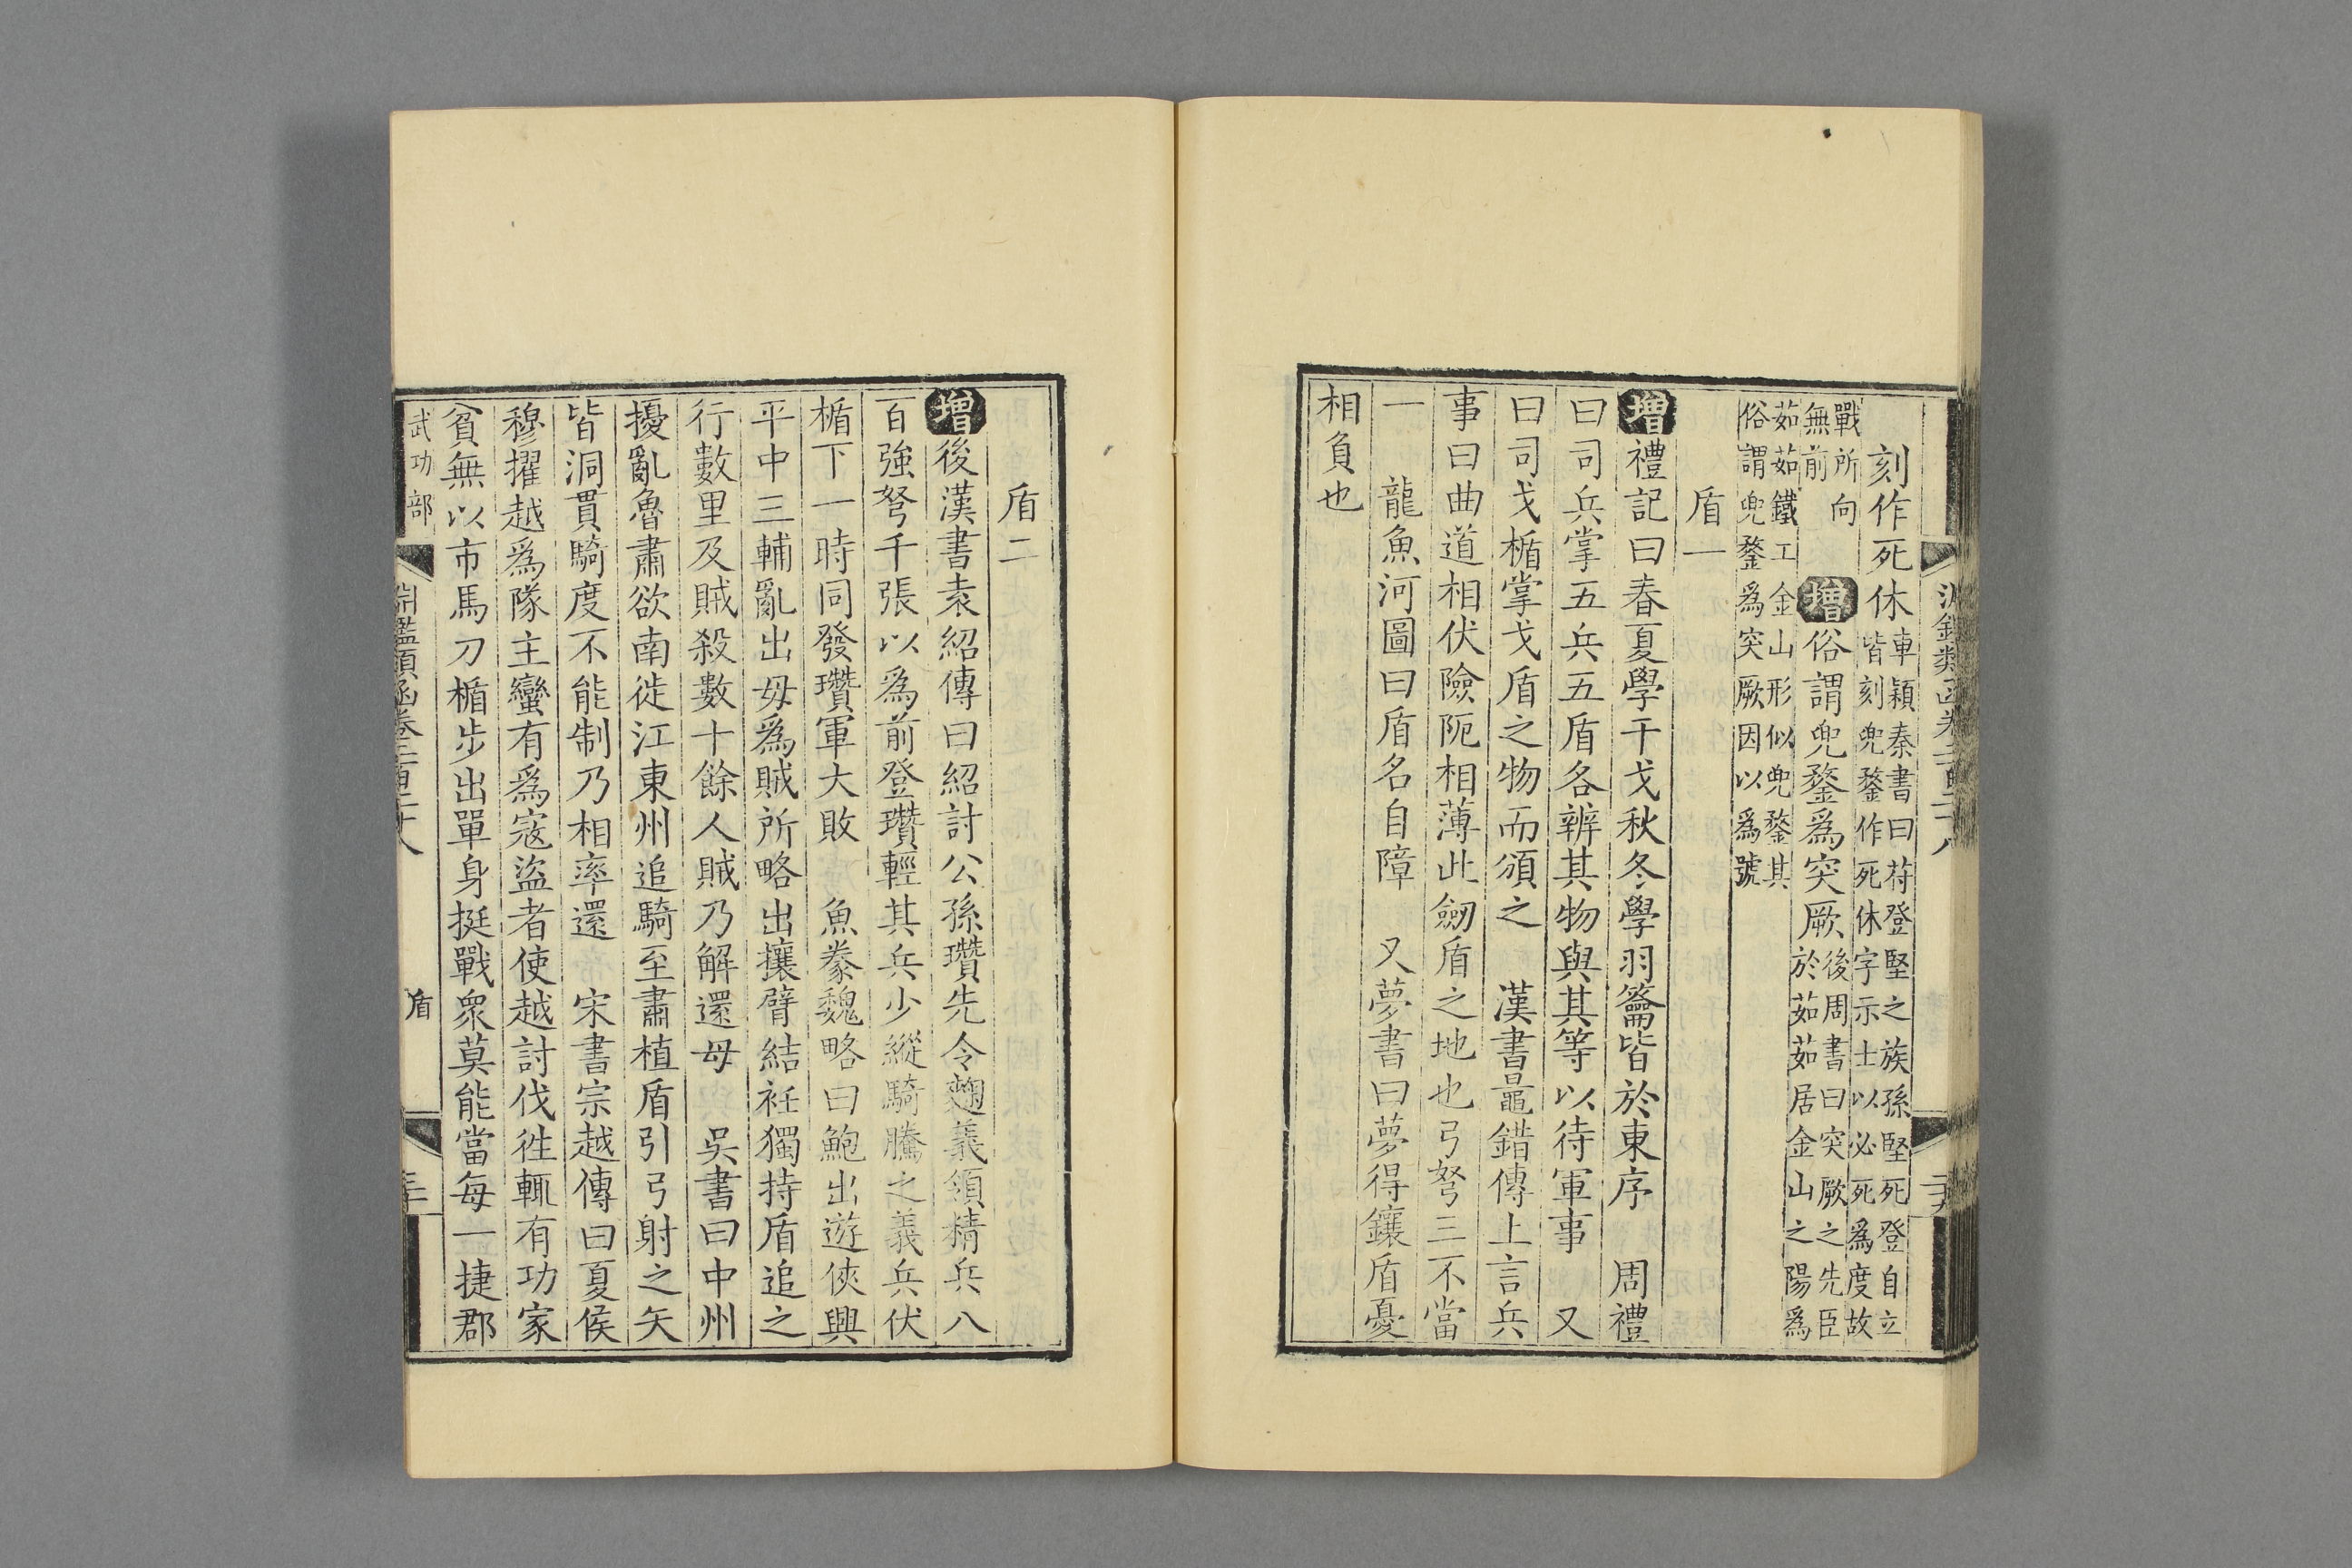 刻作死休車穎秦書曰苻登堅之族孫堅死登自立皆刻兜鍪作死休字示士以必死爲度故
戰所向無前 增俗謂兜鍪爲突厥後周書曰突厥之先臣於茹茹居金山之陽爲
茹茹鐵工金山形似兜鍪其俗謂兜鍪爲突厥因以爲號
盾一
增禮記曰春夏學干戈秋冬學羽籥皆於東序 周禮
曰司兵掌五兵五盾各辨其物與其等以待軍事 又
曰司戈楯掌戈盾之物而頒之 漢書鼂錯傳上言兵
事曰曲道相伏險阨相薄此劒盾之地也弓弩三不當
一 龍魚河圖曰盾名自障 又夢書曰夢得鑲盾憂
相負也
盾二
增後漢書袁紹傳曰紹討公孫瓚先令麴義領精兵八
百強弩千張以爲前登瓚輕其兵少縱騎騰之義兵伏
楯下一時同發瓚軍大敗 魚豢魏略曰鮑出遊俠興
平中三輔亂出母爲賊所略出攘臂結衽獨持盾追之
行數里及賊殺數十餘人賊乃解還母 吳書曰中州
擾亂魯肅欲南徙江東州追騎至肅植盾引弓射之矢
皆洞貫騎度不能制乃相率還 宋書宗越傳曰夏侯
穆擢越爲隊主蠻有爲寇盜者使越討伐徃輒有功家
貧無以市馬刀楯步出單身挺戰衆莫能當每一捷郡
武功部 淵鑑類函卷二百二十八 盾